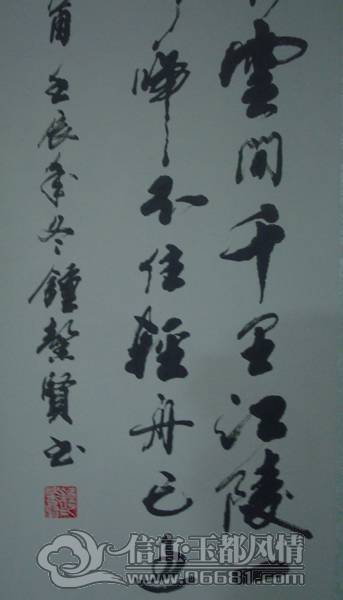 雲間千里江陵一
啼不住輕舟已過
壬辰年冬鍾馨賢書
信宜·玉都风情
www.06681.com